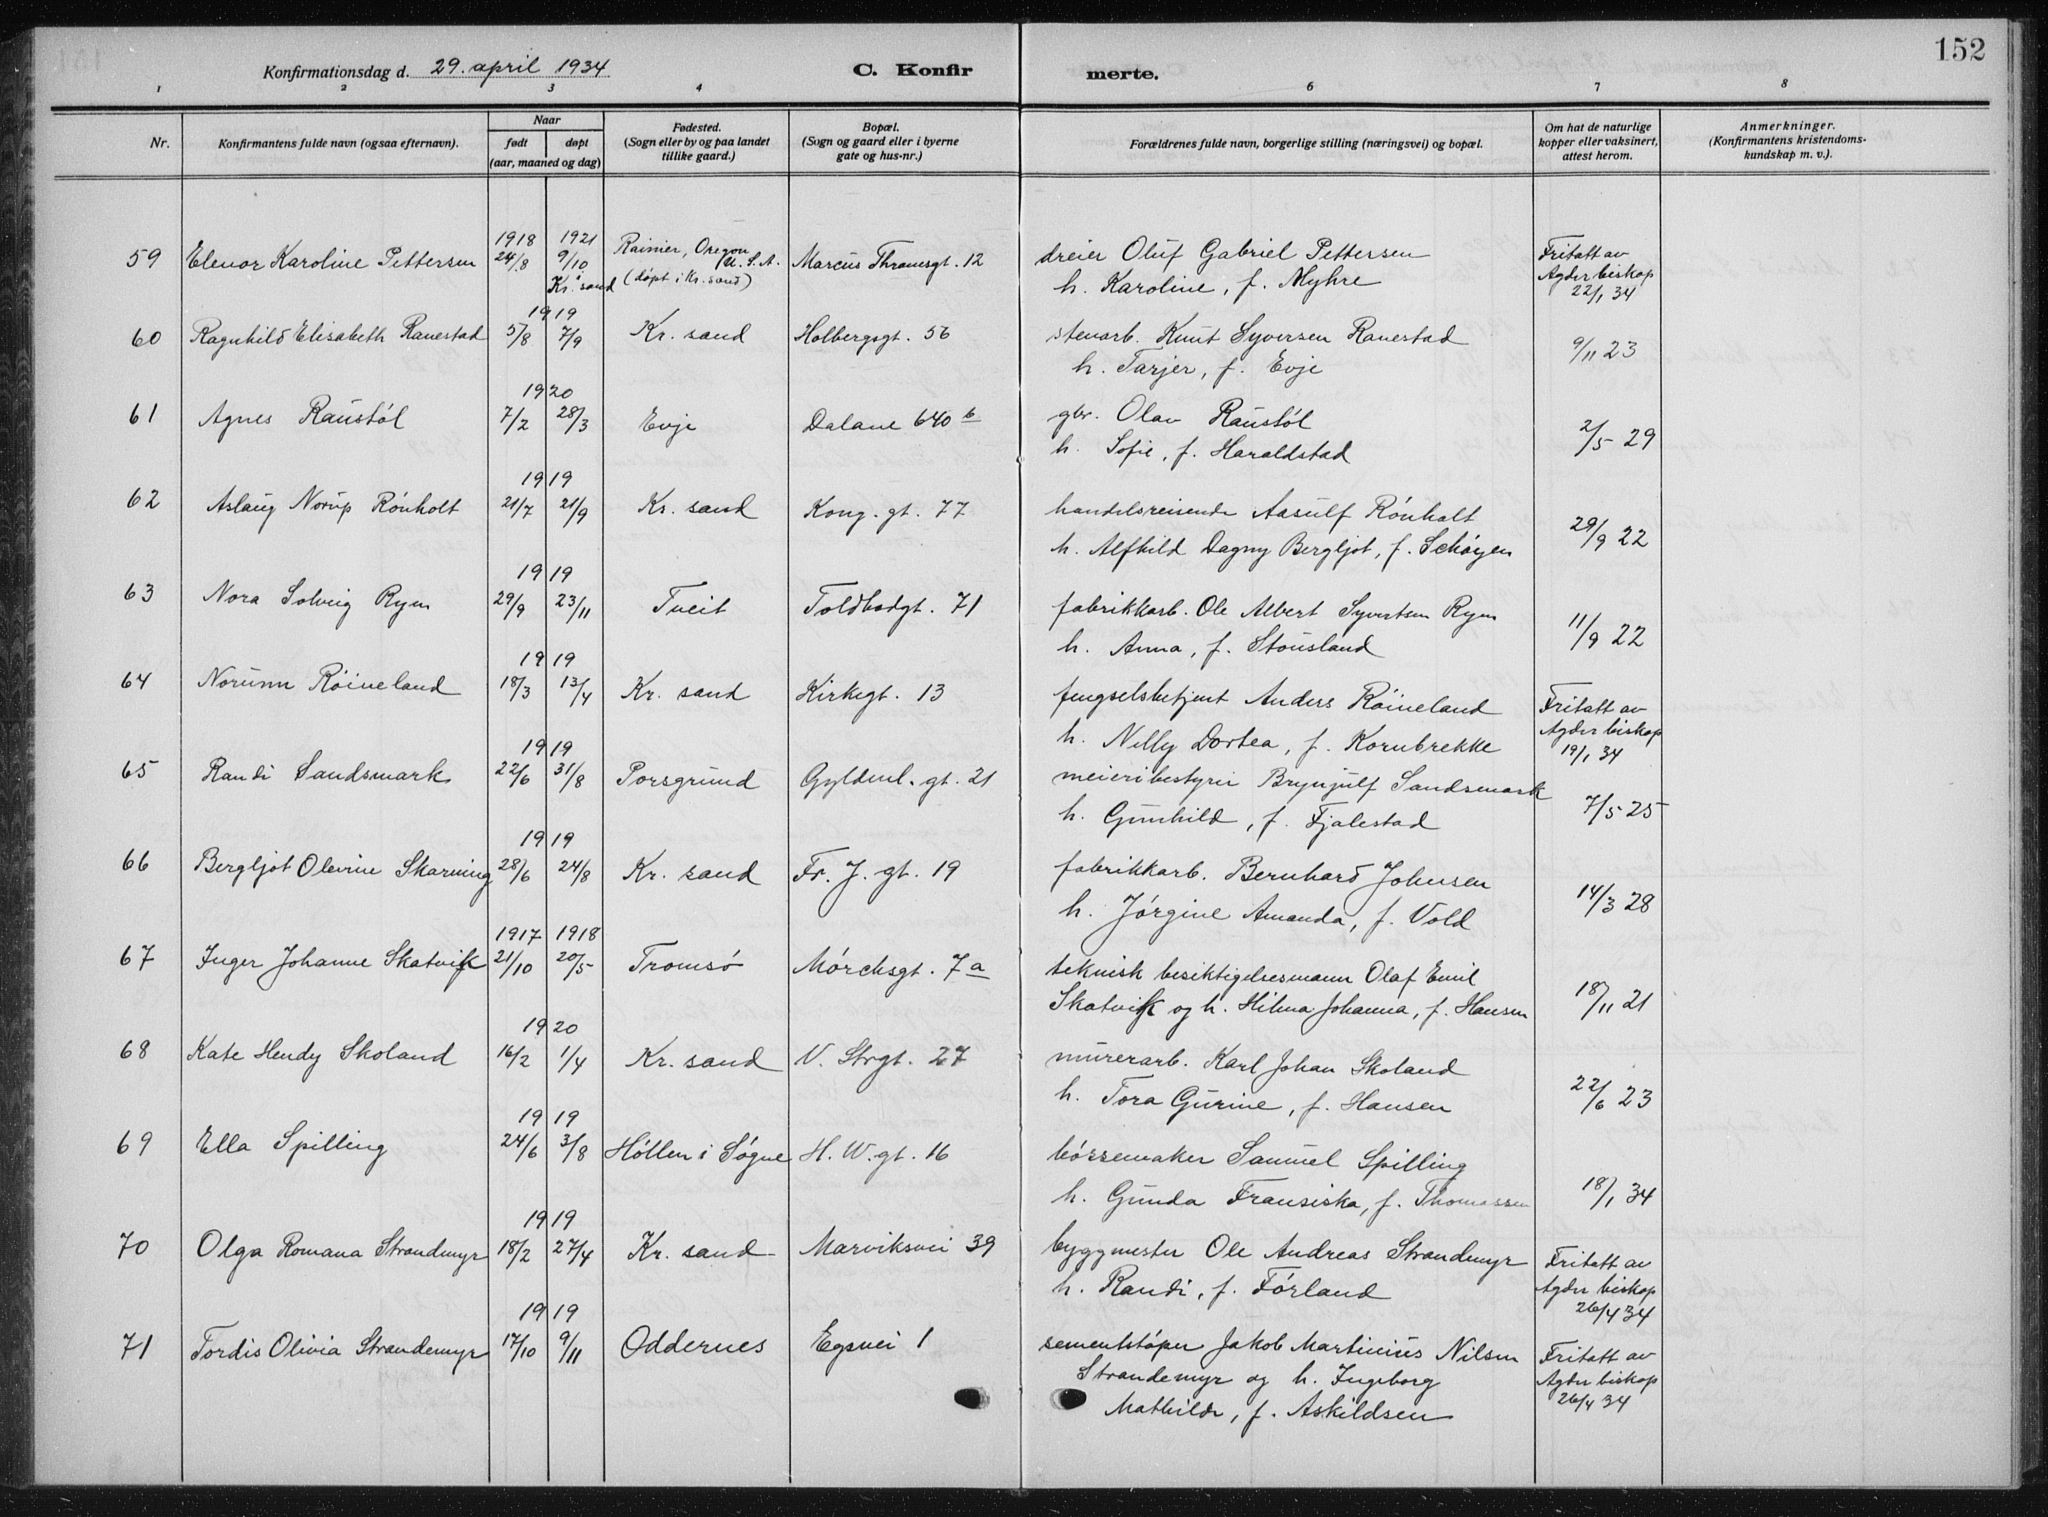 152
Konfirmationsdag d. 29. april 1934 C. Konfirmerte.
1 2 3 4 6 7 8
Nr. Konfirmantens fulde navn (ogsaa efternavn). Naar født døpt (aar, maaned og dag) Fødested. (Sogn eller by og paa landet tillike gaard.) Bopæl. (Sogn og gaard eller i byerne gate og hus-nr.) Forældrenes fulde navn, borgerlige stilling (næringsvei) og bopæl. Om hat de naturlige kopper eller vaksinert, attest herom. Anmerkninger. (Konfirmantens kristendoms-kundskap m. v.).
59 Elenor Karoline Pettersen 1918 24/8 1921 9/10 Kr.sand Rainier, Oregon U.S.A. (døpt i Kr.sand) Marcus Thranesgt. 12 dreier Oluf Gabriel Pettersen
h. Karoline, f. Myhre Fritatt av Agder biskop 22/1 34
60 Ragnhild Elisabeth Ranestad 1919 5/8 7/9 Kr. sand Holbergsgt. 56 stenarb. Knut Syversen Ranestad
h. Tarjer, f. Evje 9/11 23
61 Agnes Raustøl 1920 7/2 28/3 Evje Dalane 640 b gbr. Olav Raustøl
h. Sofie, f. Haraldstad 2/5 29
62 Aslaug Norup Rønholt 1919 21/7 21/9 Kr. sand Kong. gt. 77 handelsreisende Aasulf Rønholt
h. Alfhild Dagny Bergljot, f. Schøyen 29/9 22
63 Nora Solveig Ryen 1919 29/9 23/11 Tveit Toldbodgt. 71 fabrikkarb. Ole Albert Syvertsen Ryen
h. Anna, f. Stousland 11/9 22
64 Norunn Røineland 1919 18/3 13/4 Kr. sand Kirkegt. 13 fengselsbetjent Anders Røineland
h. Nelly Dortea, f. Kornbrekke Fritatt av Agder biskop 19/1 34
65 Randi Sandsmark 1919 22/6 31/8 Porsgrund Gyldenl. gt. 21 meieribestyrer Brynjulf Sandsmark
h. Gunhild, f. Fjalestad 7/5 25
66 Bergljot Olevine Skarning 1919 28/6 24/8 Kr. sand Fr. J. gt. 19 fabrikkarb. Bernhard Johnsen
h. Jørgine Amanda, f. Vold 14/3 28
67 Inger Johanne Skatvik 1917 21/10 1918 20/5 Tromsø Mørchsgt. 7a teknisk besiktigelsesmann Olaf Emil
Skatvik og h. Hilma Johanna, f. Hansen 18/11 21
68 Kate Hendy Skoland 1920 16/2 1/4 Kr. sand V. Strgt. 27 murerarb. Karl Johan Skoland
h. Tora Gurine, f. Hansen 22/6 23
69 Ella Spilling 1919 24/6 3/8 Høllen i Søgne H. W. gt. 16 børsemaker Samuel Spilling
h. Gunda Fransiska, f. Thomassen 18/1 34
70 Olga Romana Strandemyr 1919 18/2 27/4 Kr. sand Marviksvei 39 byggmester Ole Andreas Strandemyr
h. Randi, f. Førland Fritatt av Agder biskop 26/4 34
71 Tordis Olivia Strandemyr 1919 17/10 9/11 Oddernes Egsvei 1 sementstøper Jakob Martinius Nilsen
Strandemyr og h. Ingeborg
Mathilde, f. Askildsen Fritatt av Agder biskop 26/4 34